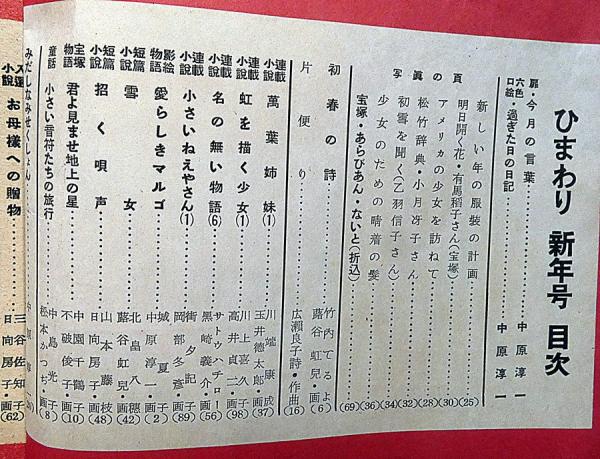 ひまわり 新年号 目次
扉・今月の言葉……中原淳一
六色口絵・過ぎた日の日記……中原淳一
写真の頁
新しい年の服装の計画……(25)
明日開く花・有馬稲子さん(宝塚)……(30)
アメリカの少女を訪ねて……(28)
松竹辞典・小月冴子さん……(32)
初雪を聞く(乙羽信子さん)……(34)
少女のための晴着の髪……(36)
宝塚・あらびあん・ないと(折込)……(69)
初春の詩……竹内てるよ 蕗谷虹児・画(6)
片便り……広瀬良子詩・作曲(16)
連載小説 萬葉姉妹(1)……川端康成 玉井徳太郎・画(37)
連載小説 虹を描く少女(1)……川上喜久子 高井貞二・画(98)
連載小説 名の無い物語(6)……サトウハチロー 黒崎義介・画(56)
連載小説 小さいねえやさん(1)……街夕記子 岡部冬彦・画(89)
影絵物語 愛らしきマルゴ……城夏子 中原淳一・画(2)
短篇小説 雪女……北畠八穂 蕗谷虹児・画(42)
短篇小説 招く唄声……山本藤枝 日向房子・画(48)
宝塚物語 君よ見ませ地上の星……中園千鶴子 不破俊子・画(10)
童話 小さい音符たちの旅行……中島光子 松本かつぢ・画(8)
みだしなみせくしょん
小説 お母様への贈物……三谷佐知子 日向房子・画(62)